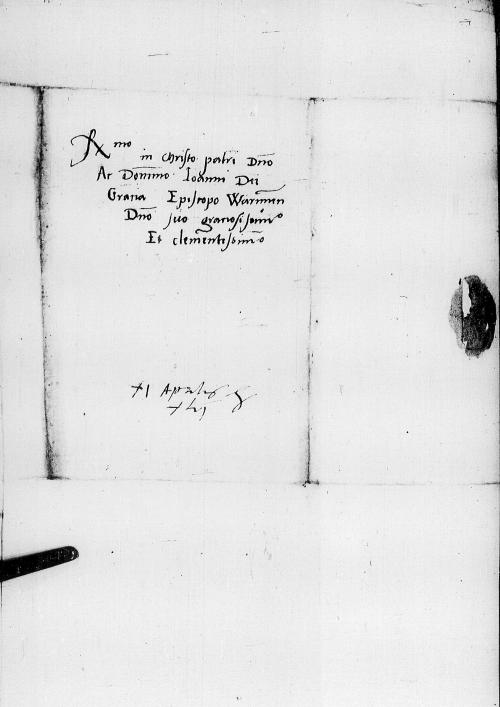 Rmo
in Christo patri Dno
Ac Domino Ioanni Dei
Gratia Episcopo Warmien
Dno suo gratiosissimo
Et clementissimo
Aprilis